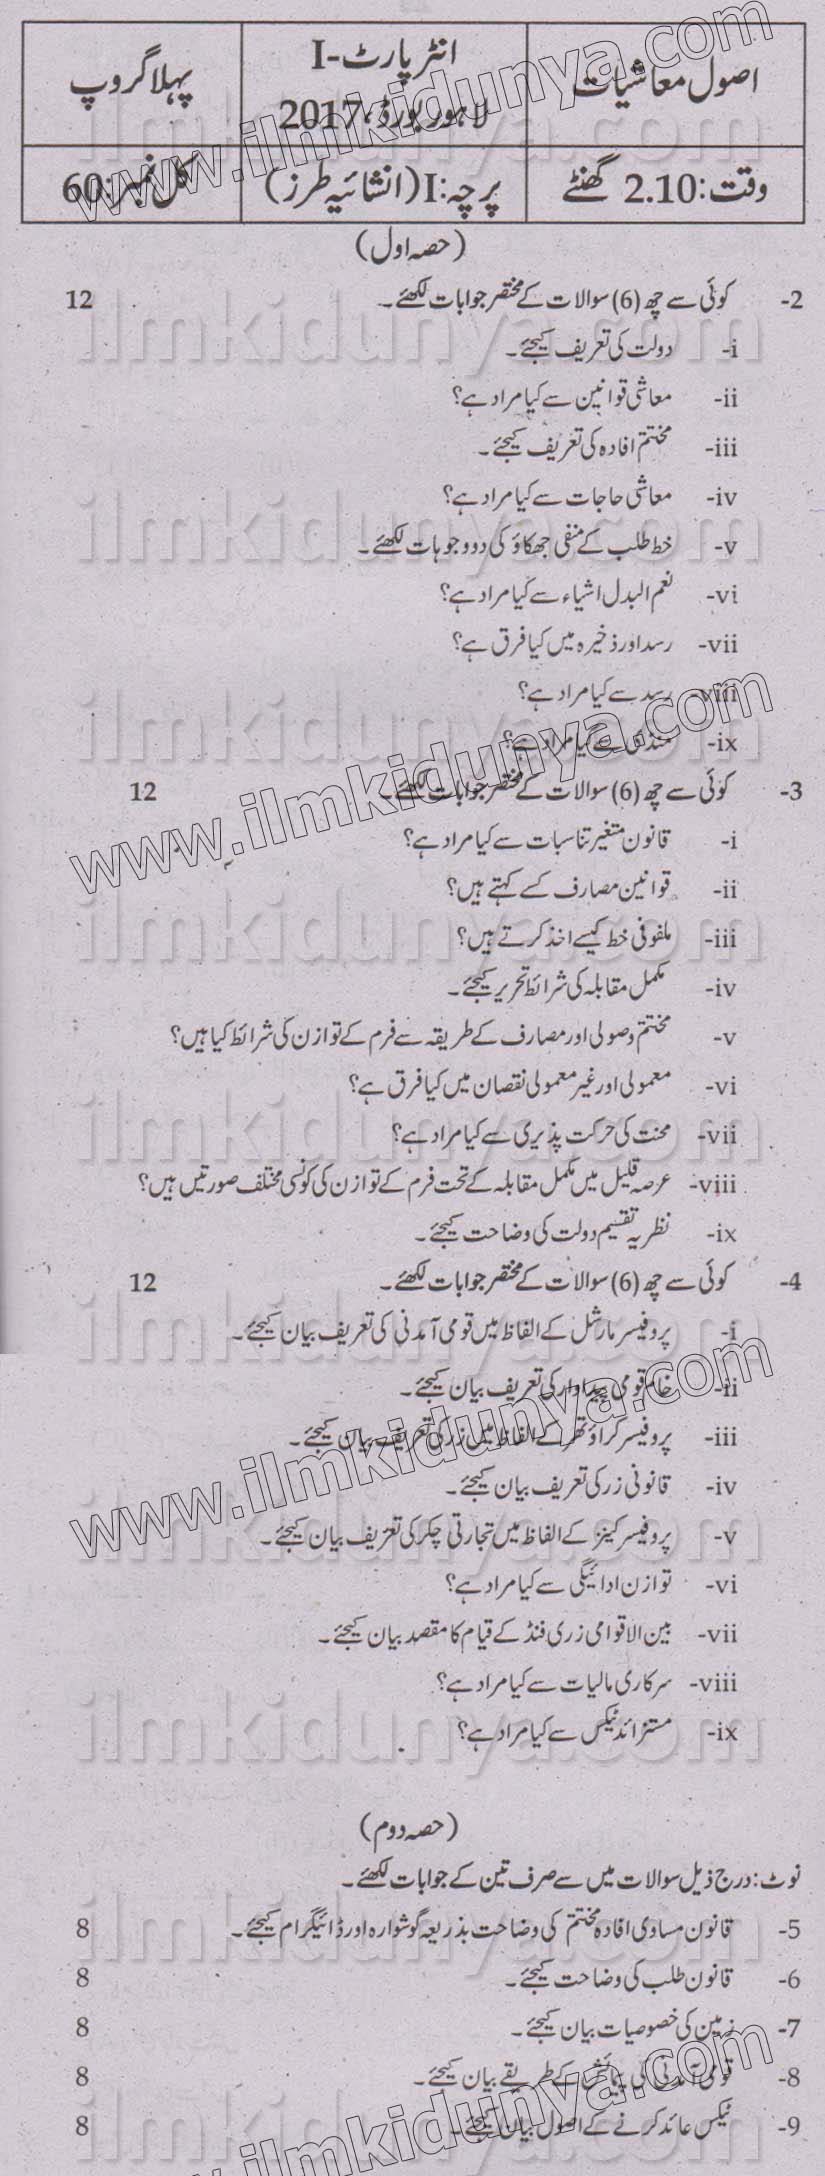 اصول معاشیات
انٹر پارٹ-I
لاہور بورڈ،2017
پہلا گروپ
وقت:2.10 گھنٹے
پرچہ:I(انشائیہ طرز)
کل نمبر:60
(حصہ اول)
2- کوئی سے چھ (6) سوالات کے مختصر جوابات لکھئے۔ 12
i- دولت کی تعریف کیجئے۔
ii- معاشی قوانین سے کیا مراد ہے؟
iii- مختتم افادہ کی تعریف کیجئے۔
iv- معاشی حاجات سے کیا مراد ہے؟
v- خط طلب کے منفی جھکاؤ کی دو وجوہات لکھئے۔
vi- نعم البدل اشیاء سے کیا مراد ہے؟
vii- رسد اور ذخیرہ میں کیا فرق ہے؟
viii- رسد سے کیا مراد ہے؟
ix- منڈی سے کیا مراد ہے؟
3- کوئی سے چھ (6) سوالات کے مختصر جوابات لکھئے۔ 12
i- قانون متغیر تناسبات سے کیا مراد ہے؟
ii- قوانین مصارف کسے کہتے ہیں؟
iii- ملفوفی خط کیسے اخذ کرتے ہیں؟
iv- مکمل مقابلہ کی شرائط تحریر کیجئے۔
v- مختتم وصولی اور مصارف کے طریقہ سے فرم کے توازن کی شرائط کیا ہیں؟
vi- معمولی اور غیر معمولی نقصان میں کیا فرق ہے؟
vii- محنت کی حرکت پذیری سے کیا مراد ہے؟
viii- عرصہ قلیل میں مکمل مقابلہ کے تحت فرم کے توازن کی کونسی مختلف صورتیں ہیں؟
ix- نظریہ تقسیم دولت کی وضاحت کیجئے۔
4- کوئی سے چھ (6) سوالات کے مختصر جوابات لکھئے۔ 12
i- پروفیسر مارشل کے الفاظ میں قومی آمدنی کی تعریف بیان کیجئے۔
ii- خام قومی پیداوار کی تعریف بیان کیجئے۔
iii- پروفیسر کراؤتھر کے الفاظ میں زر کی تعریف بیان کیجئے۔
iv- قانونی زر کی تعریف بیان کیجئے۔
v- پروفیسر کینز کے الفاظ میں تجارتی چکر کی تعریف بیان کیجئے۔
vi- توازن ادائیگی سے کیا مراد ہے؟
vii- بین الاقوامی زری فنڈ کے قیام کا مقصد بیان کیجئے۔
viii- سرکاری مالیات سے کیا مراد ہے؟
ix- مستزائد ٹیکس سے کیا مراد ہے؟
(حصہ دوم)
نوٹ: درج ذیل سوالات میں سے صرف تین کے جوابات لکھئے۔
5- قانون مساوی افادہ مختتم کی وضاحت بذریعہ گوشوارہ اور ڈائیگرام کیجئے۔ 8
6- قانون طلب کی وضاحت کیجئے۔ 8
7- زمین کی خصوصیات بیان کیجئے۔ 8
8- قومی آمدنی کی پیمائش کے طریقے بیان کیجئے۔ 8
9- ٹیکس عائد کرنے کے اصول بیان کیجئے۔ 8
www.ilmkidunya.com
ilmkidunya.com